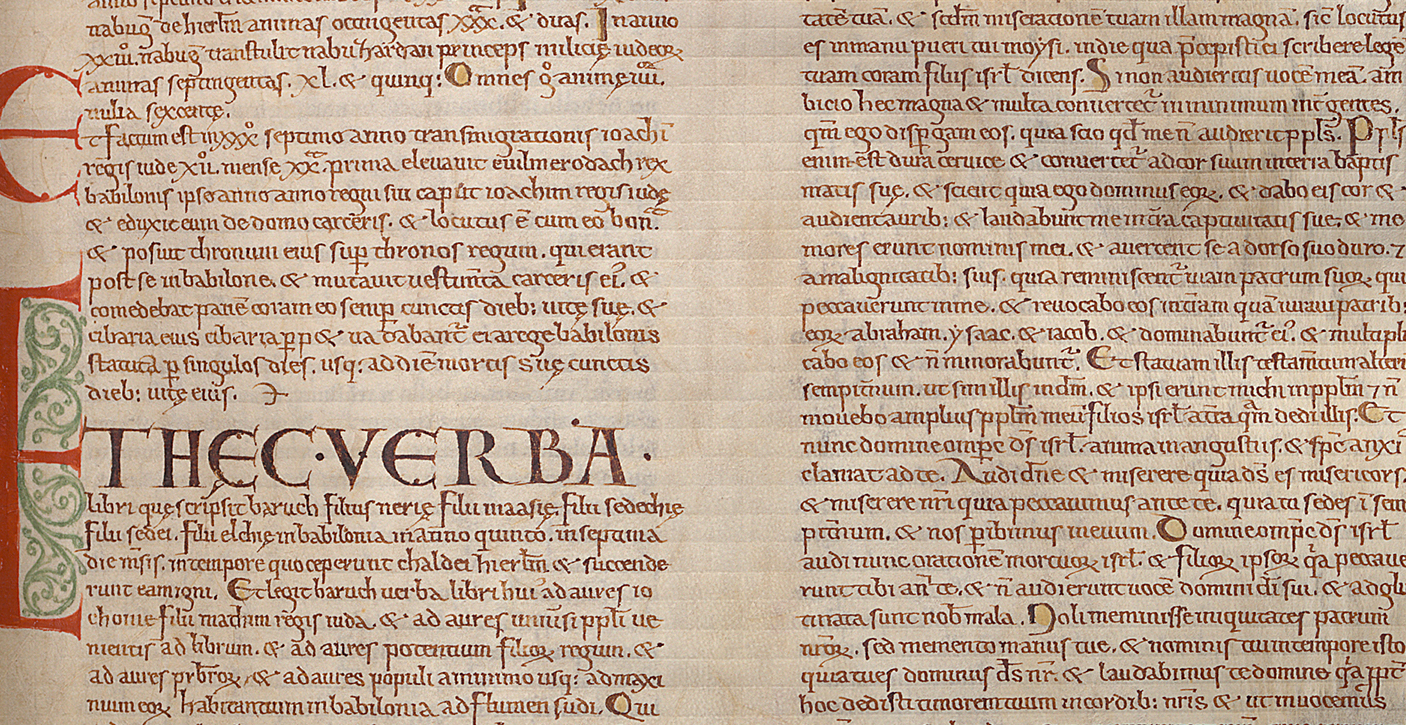 nabug̅ de hierl̅m animas octingentas xxx̅c. & duas. In anno
xxiii. nabug̅ transtulit nabuzardan princeps militię iudeoꝝ
animas septingentas. xl. & quinq;. Omnes g̊ animę iiii.
milia sexcentę.
Et factum est in xxx̊ septimo anno transmigrationis ioachi̅
regis iude xii̊. mense xx̅. prima elevauit euilmerodach rex
babilonis ipso anno anno regni sui caput ioachim regis iudę
& eduxit eum de domo carceris. & locutus e̅ cum eo bon̅.
& posuit thronum eius sup̅ thronos regum. qui erant
post se in babilone. & mutauit uestim̅ta carceris ei᷒. &
comedebat pane̅ coram eo semp̅ cunctis dieb; uitę suę. &
cibaria eius cibaria ꝑpe&ua dabant̅ ei a rege babilonis
statuta ꝑ singulos dies. usq; ad die̅ mortis suę cunctis
dieb; uitę eius.
ET HĘC·VERBA·
libri quę scripsit baruch filius nerię filii maasię. filii sedechię
filii sedei. filii elchię in babilonia in anno quinto. in septima
die m̅sis. in tempore quo ceperunt chaldei hierl̅m & succende
runt eam igni. Et legit baruch uerba libri hui᷒ ad aures io
chonie filii machim regis iuda. & ad aures uniu̅si ppl̅i ue
nientis ad librum. & ad aures potentium filioꝝ regum. &
ad aures prb̅roꝝ & ad aures populi a minimo usq; ad maxi
mum eoꝝ habitantium in babilonia ad flumen sudi. Qui
tate̅ tua̅. & scd̅m miseratione̅ tuam illam magna̅. sic̅ locutus
es in manu pueri tui moysi. in die qua p̅cepisti ei scribere lege̅
tuam coram filiis isrl̅ dicens. Si non audieritis uoce̅ mea̅. am
bicio hec magna & multa conuertet̅ in minimum int̅ gentes.
qm̅ ego disꝑgam eos. quia scio qd̅ me n̅ audierit ppl̅s. Ppl̅s
enim est dura ceruice & conuertet̅ ad cor suum in terra captiui
tatis suę. & scient quia ego dominus eoꝝ. & dabo eis cor &
audient aurib; & laudabunt me in t̅ra captiuitatis sue. & me
mores erunt nominis mei. & auertent se a dorso suo duro. ⁊
a malignitatib; suis. quia reminiscent̅ uiam patrum suoꝝ qui
peccauerunt in me. & reuocabo eos in t̅ram qua̅ iuraui patrib;
eoꝝ abraham. ysaac. & iacob. & dominabunt̅ ei᷒. & multipli
cabo eos & n̅ minorabunt̅. Et statuam illis testam̅tum alteru̅
sempit̅num. ut sim illis in dm̅. & ipsi erunt michi in ppl̅m ⁊ n̅
mouebo amplius ppl̅m meu̅ filios isrl̅ a t̅ra qm̅ dedi illis. Et
nunc domine omp̅s ds̅ isrl̅. anima in angustiis. & sp̅c anxi
clamat ad te. Audi dn̅e & miserere quia ds̅ es misericors.
& miserere nr̅i quia peccauimus ante te. quia tu sedes i̅ sem
pit̅num. & nos peribimus in euum. Domine omp̅s ds̅ isrl̅
audi nunc oratione̅ mortuoꝝ isrl̅. & filioꝝ ipsoꝝ q̅a peccaue
runt tibi an̅ te. & n̅ audierunt uoce̅ domini di̅ sui. & adglu
tinata sunt nob̅ mala. Noli meminisse iniquitates patrum
nr̅oꝝ. sed memento manus tue. & nominis tui in tempore isto
quia tu es dominus ds̅ nr̅. & laudabimus te domine q̅a ꝓpt̅
hoc dedisti timorem tuum in cordib; nr̅is & ut inuocem᷒